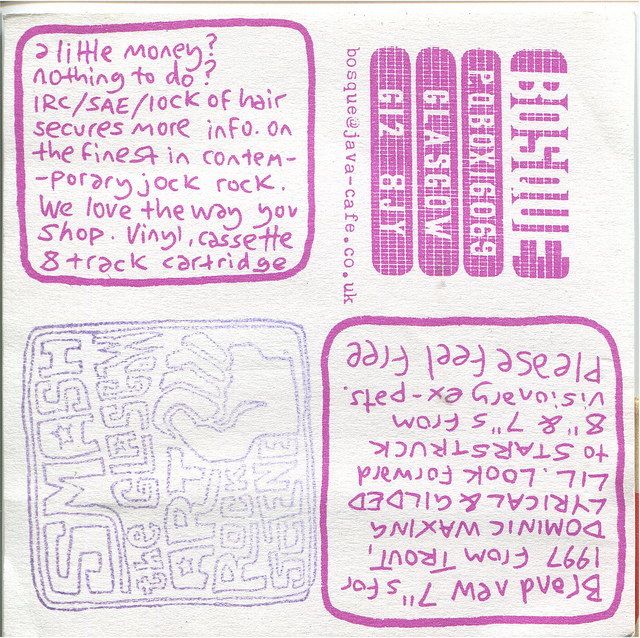 a little money?
nothing to do?
IRC/SAE/lock of hair
secures more info. on
the finest in contem-
-porary jock rock.
We love the way you
shop. Vinyl, cassette
8 track cartridge
BOSQUE
P.O.BOX16063
GLASGOW
8JY
bosque@java-cafe.co.uk
SMASH
the
ART
ROCK
SCENE
Brand new 7"s for
1997 from TROUT,
DOMINIC WAXING
LYRICAL & GILDED
LIL. LOOK Forward
to STARSTRUCK
8" & 7"s from
visionary ex-pats.
Please feel free